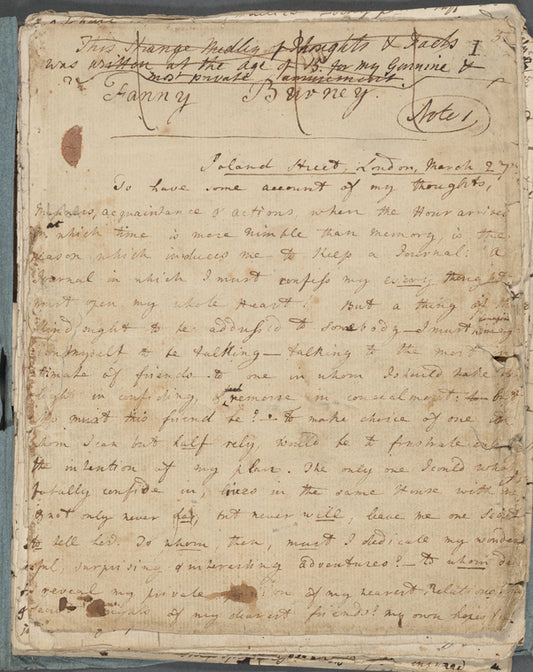 This strange medley of Thoughts & Facts
was written at the age of 15 for my Genuine &
most private amusement.
Fanny Burney.
Note 1,
I
Poland Street, London, March 27
To have some account of my thoughts,
manners, acquaintance & actions, when the Hour arrives
at which time is more nimble than memory, is the
reason which induces me to keep a Journal: a
Journal in which I must confess my every thought,
must open my whole Heart! But a thing of the
kind ought to be addressed to somebody — I must imagine
myself to be talking — talking to the most
intimate of friends — to one in whom I should take
delight in confiding, & feel remorse in concealment: but
who must this friend be? — to make choice of one in
whom I can but half rely, would be to frustrate
the intention of my plan. The only one I could
totally confide in, lives in the same House with me
& not only never has, but never will, leave me one secret
to tell her. To whom then, must I dedicate my wonderful,
surprising & interesting adventures? — to whom
reveal my private opinion of my nearest Relations
of my dearest friends? my own hopes